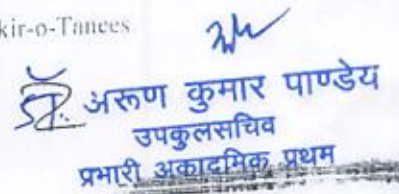 kir-o-Tanees
डॉ. अरूण कुमार पाण्डेय
उपकुलसचिव
प्रभारी अकादमिक प्रथम